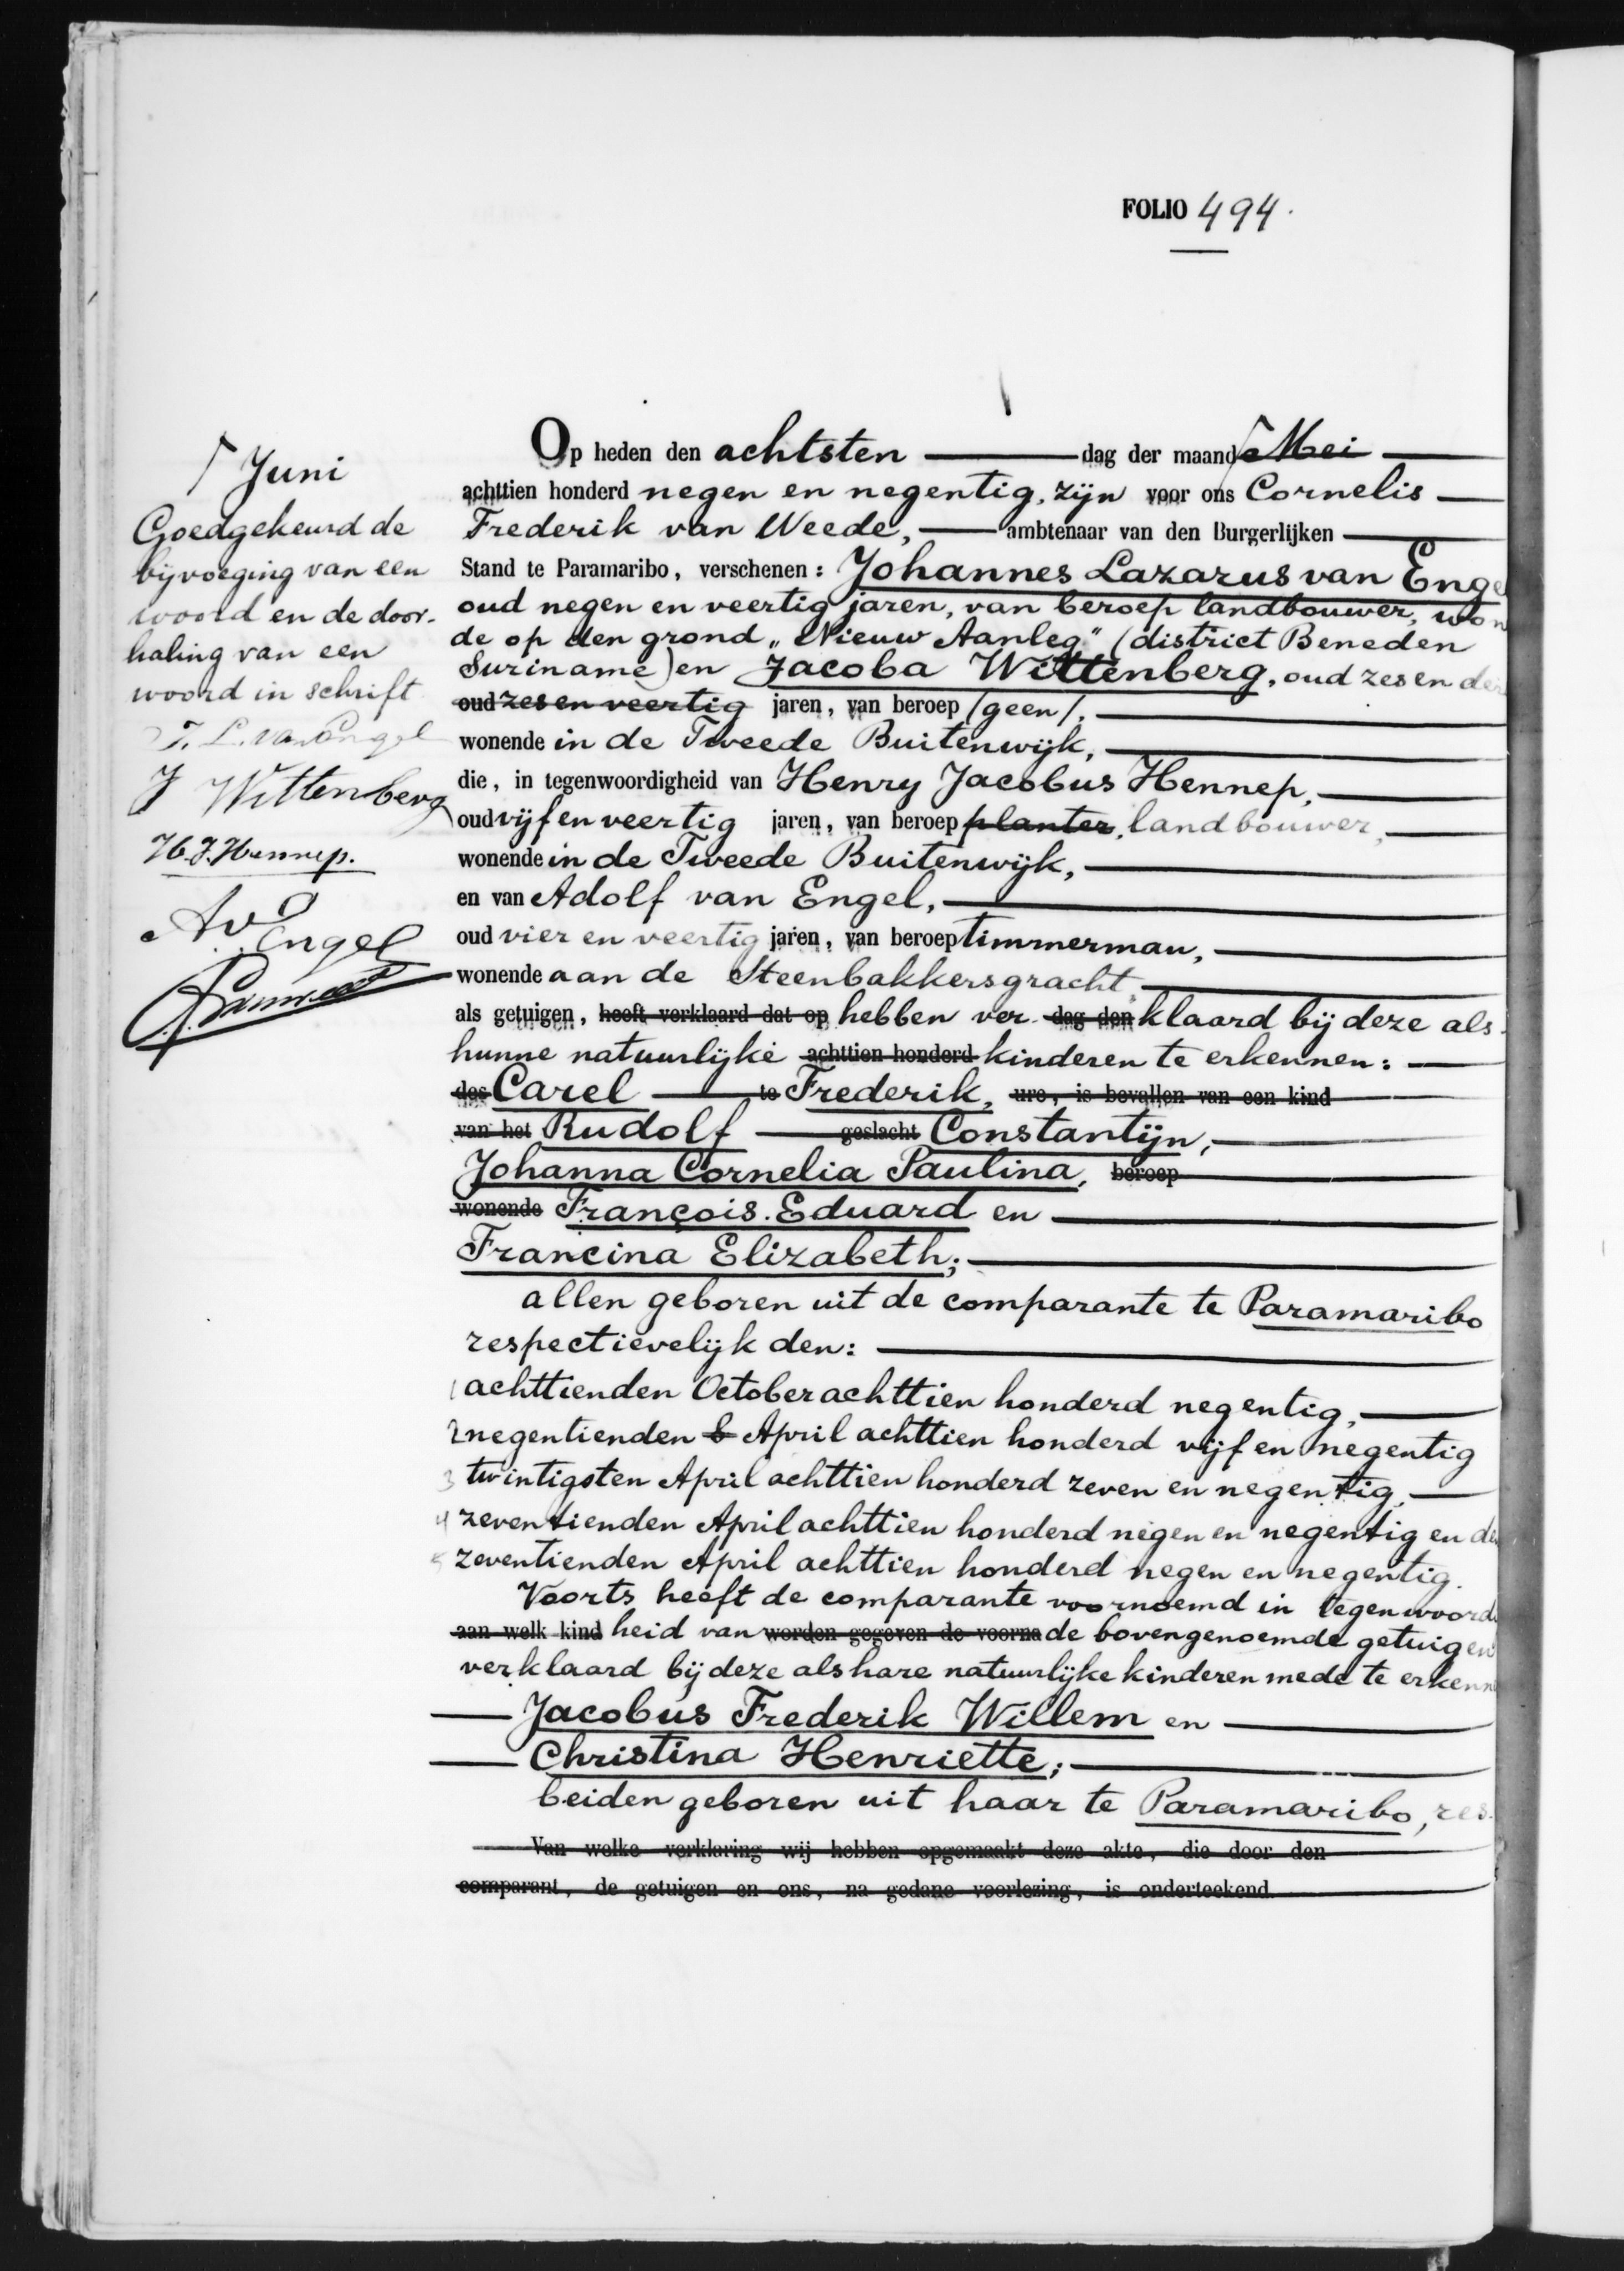 FOLIO 494.
Op heden den achtsten dag der maand Mei
achttien honderd negen en negentig, zijn voor ons Cornelis
Frederik van Weede, ambtenaar van den Burgerlijken
Stand te Paramaribo, verschenen: Johannes Lazarus van Enge
oud negen en veertig jaren, van beroep landbouwer, won
de op den grond „Nieuw Aanleg" (district Beneden
Suriname) en Jacoba Wittenberg, oud zes en der
oud zes en veertig jaren, van beroep (geen),
wonende in de Tweede Buitenwijk,
die, in tegenwoordigheid van Henry Jacobus Hennep,
oud vijf en veertig jaren, van beroep planter, landbouwer,
wonende in de Tweede Buitenwijk,
en van Adolf van Engel,
oud vier en veertig jaren, van beroep timmerman,
wonende aan de Steenbakkersgracht,
als getuigen, heeft verklaard dat op hebben ver- dag den klaard bij deze als
hunne natuurlijke achttien honderd kinderen te erkennen:
des Carel te Frederik, ure, is bevallen van een kind
van het Rudolf geslacht Constantijn,
Johanna Cornelia Paulina, beroep
wonende François Eduard en
Francina Elizabeth;
allen geboren uit de comparante te Paramaribo
respectievelijk den:
1 achttienden October achttien honderd negentig,
2 negentienden April achttien honderd vijf en negentig
3 twintigsten April achttien honderd zeven en negentig,
4 zeventienden April achttien honderd negen en negentig en de
5 zeventienden April achttien honderd negen en negentig.
Voorts heeft de comparante voornoemd in tegenwoordi
aan welk kind heid van worden gegeven de voorna de bovengenoemde getuigen
verklaard bij deze als hare natuurlijke kinderen mede te erkenn
Jacobus Frederik Willem en
Christina Henriette;
beiden geboren uit haar te Paramaribo, res-
Van welke verklaring wij hebben opgemaakt deze akte, die door den
comparant, de getuigen en ons, na gedane voorlezing, is onderteekend.
Juni
Goedgekeurd de
bijvoeging van een
woord en de door-
haling van een
woord in schrift
J. L. van Engel
J Wittenberg
H. J. Hennep.
A v Engel